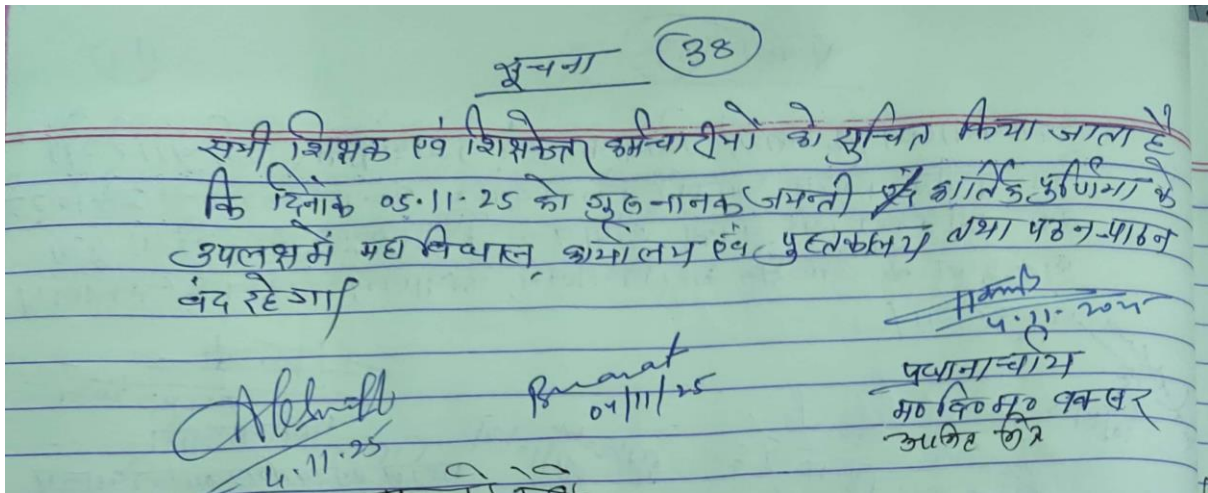 सूचना (38)
सभी शिक्षक एवं शिक्षकेत्तर कर्मचारीयों को सुचित किया जाता है
कि दिनांक 05.11.25 को गुरु नानक जयन्ती एवं कार्तिक पुर्णिमा के
उपलक्ष में महाविद्यालय कार्यालय एवं पुस्तकालय तथा पठन-पाठन
बंद रहेगा।
4.11.2025
04/11/25
प्रधानाचार्य
म० वि० म० बक्सर
4.11.25